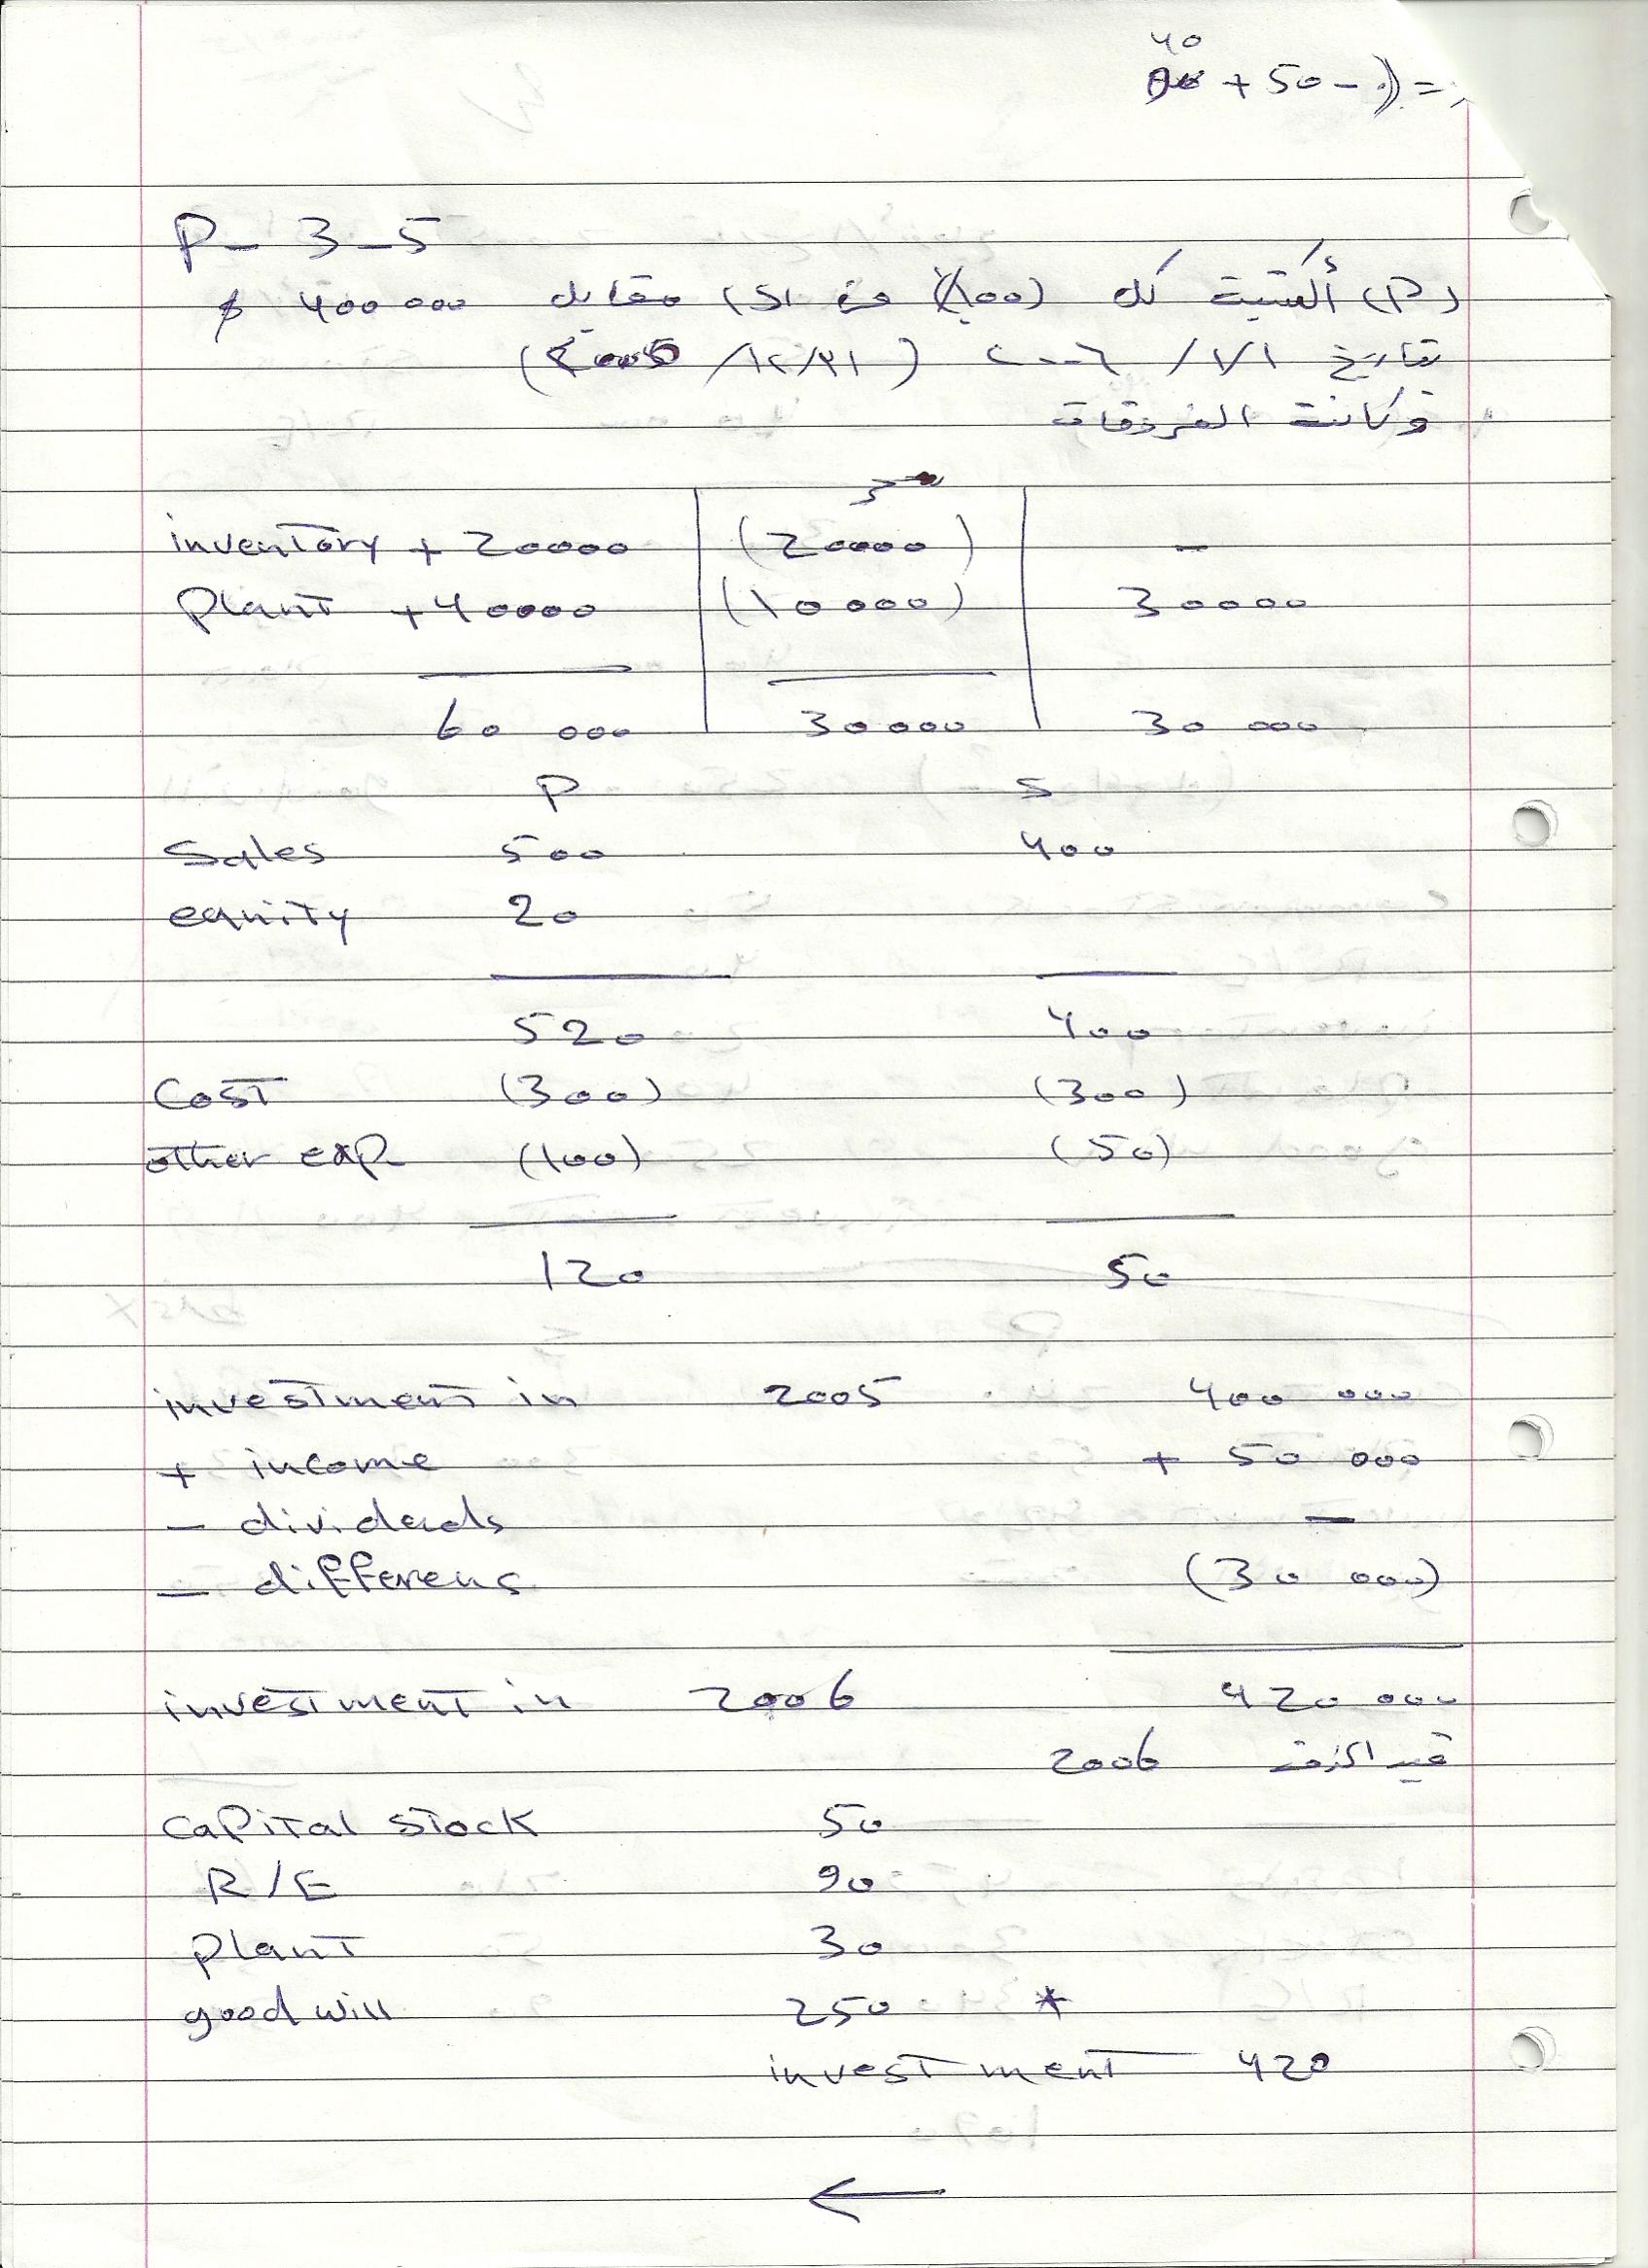 40
+ 50 - =
P - 3 - 5
(P) أكتسبت كل (100%) من (S) مقابل 400 000 $
بتاريخ ١/١/ ٢٠٠٦ (٣١/١٢/ 2005)
وكانت الفروقات
inventory + 20000 (20000) -
Plant + 40000 (10 000) 30000
60 000 30 000 30 000
P S
Sales 500 400
equity 20
520 400
Cost (300) (300)
other exp (100) (50)
120 50
investment in 2005 400 000
+ income + 50 000
- dividends -
- differens (30 000)
investment in 2006 420 000
قيد الحذف 2006
capital stock 50
R/E 90
plant 30
good will 250 *
investment 420
←